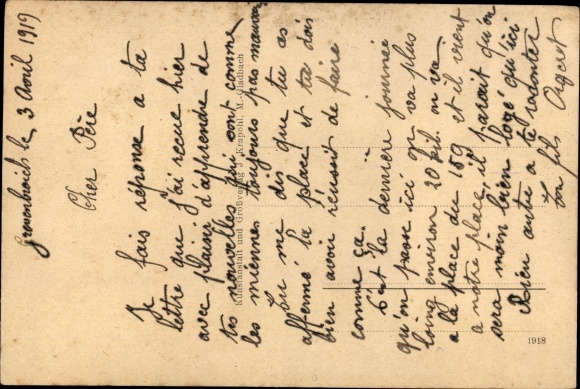 Grevenbroich le, 3 Avril 1919
Cher Père
Je fais réponse a ta
lettre que j'ai recue hier
avec plaisir d'apprendre de
tes nouvelles qui sont comme
les miennes toujours pas mauvais
Tu me dis que tu as
affermé la place et tu dois
bien avoir réussit de faire
comme ça.
C'est la dernière journée
qu'on passe ici on va plus
loing environ 20 kil. on va
a la place du 189 et il vient
a notre place, il parait qu'on
sera moin bien logé qu'ici
Rien autre a te raconter
ton fils
Kunstanstalt und Großverlag J. Krapohl, M.-Gladbach
1918